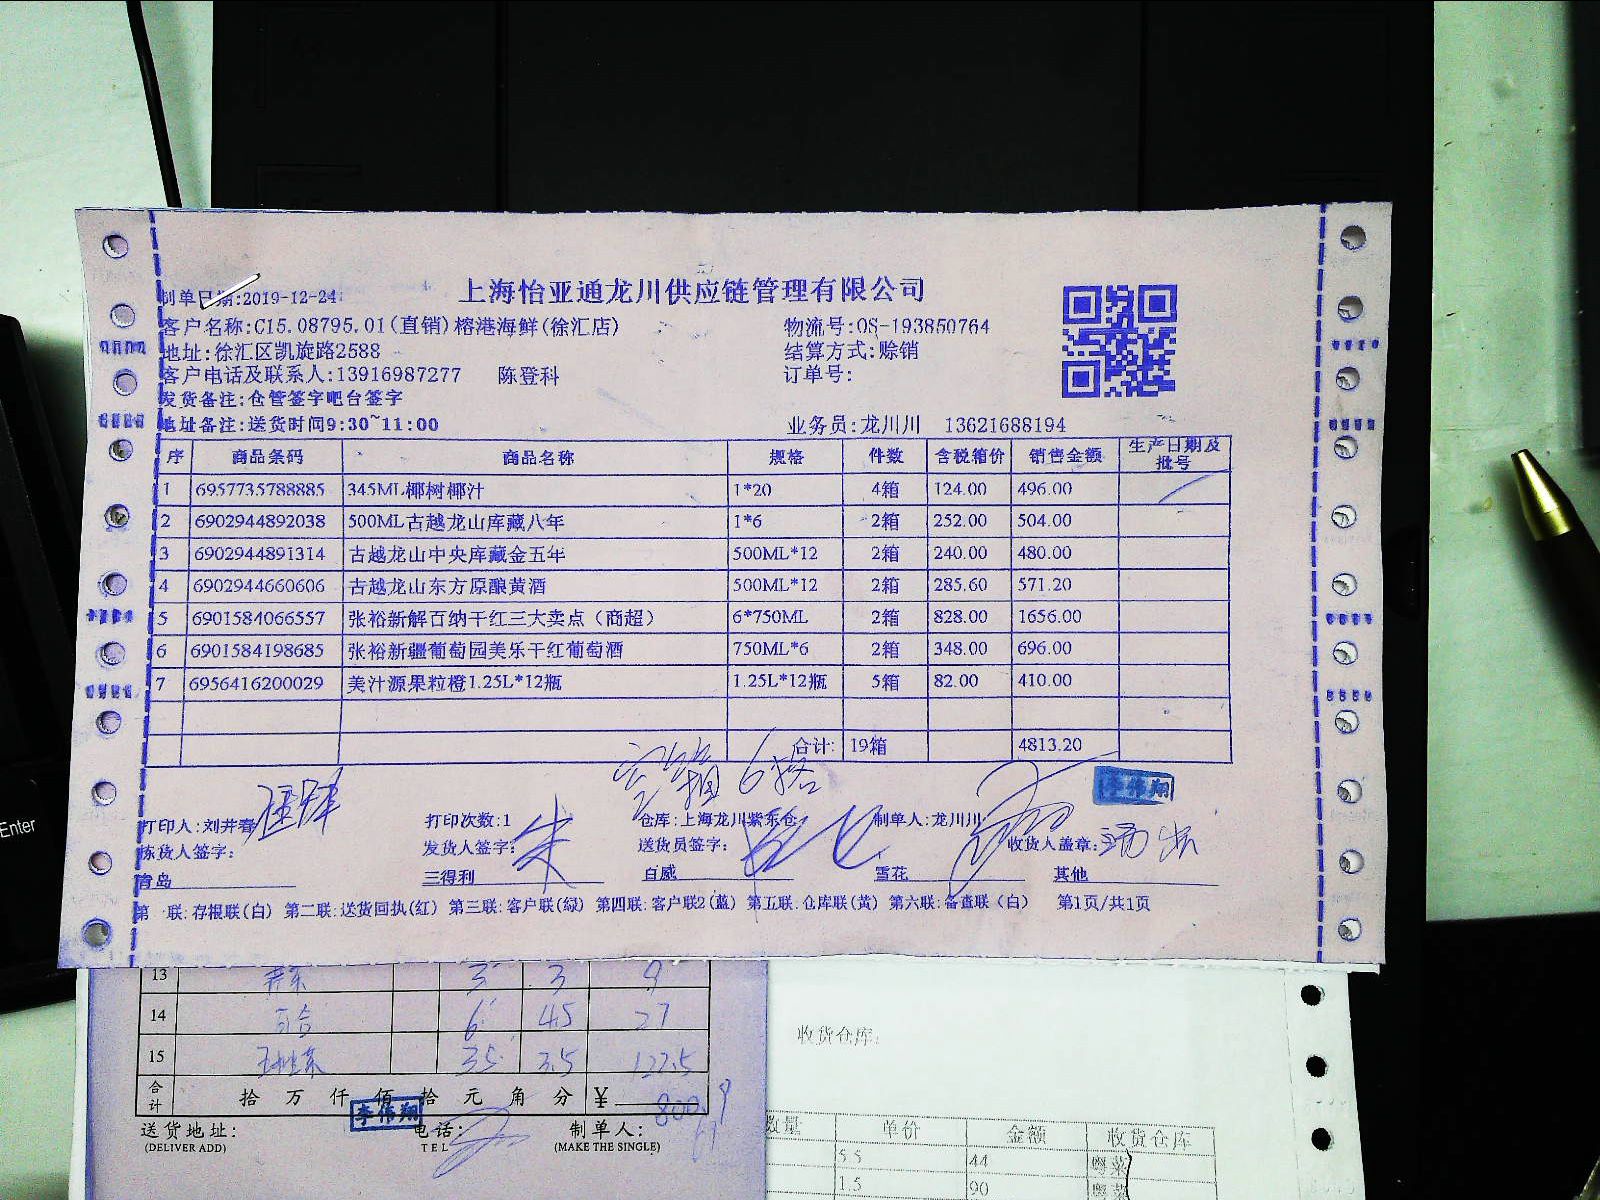 上海怡亚通龙川供应链管理有限公司
制单日期:2019-12-24
客户名称:C15.08795.01(直销)榕港海鲜(徐汇店) 物流号:OS-193850764
地址:徐汇区凯旋路2588 结算方式:赊销
客户电话及联系人:13916987277 陈登科 订单号:
发货备注:仓管签字吧台签字
地址备注:送货时间9:30~11:00 业务员:龙川川 13621688194
序 商品条码 商品名称 规格 件数 含税箱价 销售金额 生产日期及批号
1 6957735788885 345ML椰树椰汁 1*20 4箱 124.00 496.00
2 6902944892038 500ML古越龙山库藏八年 1*6 2箱 252.00 504.00
3 6902944891314 古越龙山中央库藏金五年 500ML*12 2箱 240.00 480.00
4 6902944660606 古越龙山东方原酿黄酒 500ML*12 2箱 285.60 571.20
5 6901584066557 张裕新解百纳干红三大卖点（商超） 6*750ML 2箱 828.00 1656.00
6 6901584198685 张裕新疆葡萄园美乐干红葡萄酒 750ML*6 2箱 348.00 696.00
7 6956416200029 美汁源果粒橙1.25L*12瓶 1.25L*12瓶 5箱 82.00 410.00
合计: 19箱 4813.20
空箱 6
李伟翔
打印人:刘井春 打印次数:1 仓库:上海龙川紫东仓 制单人:龙川川
拣货人签字: 发货人签字: 朱 送货员签字: 收货人盖章:
青岛 三得利 百威 雪花 其他
第一联:存根联(白) 第二联:送货回执(红) 第三联:客户联(绿) 第四联:客户联2(蓝) 第五联:仓库联(黄) 第六联:备查联(白) 第1页/共1页
13 3 3 9
14 百合 6 4.5 27
15 35 3.5 122.5
合计 拾 万 仟 佰 拾 元 角 分 ¥ 800.9
李伟翔
送货地址: 电话: 制单人:
(DELIVER ADD) TEL (MAKE THE SINGLE)
收货仓库:
数量 单价 金额 收货仓库
5.5 44 粤菜
1.5 90 粤菜
Enter